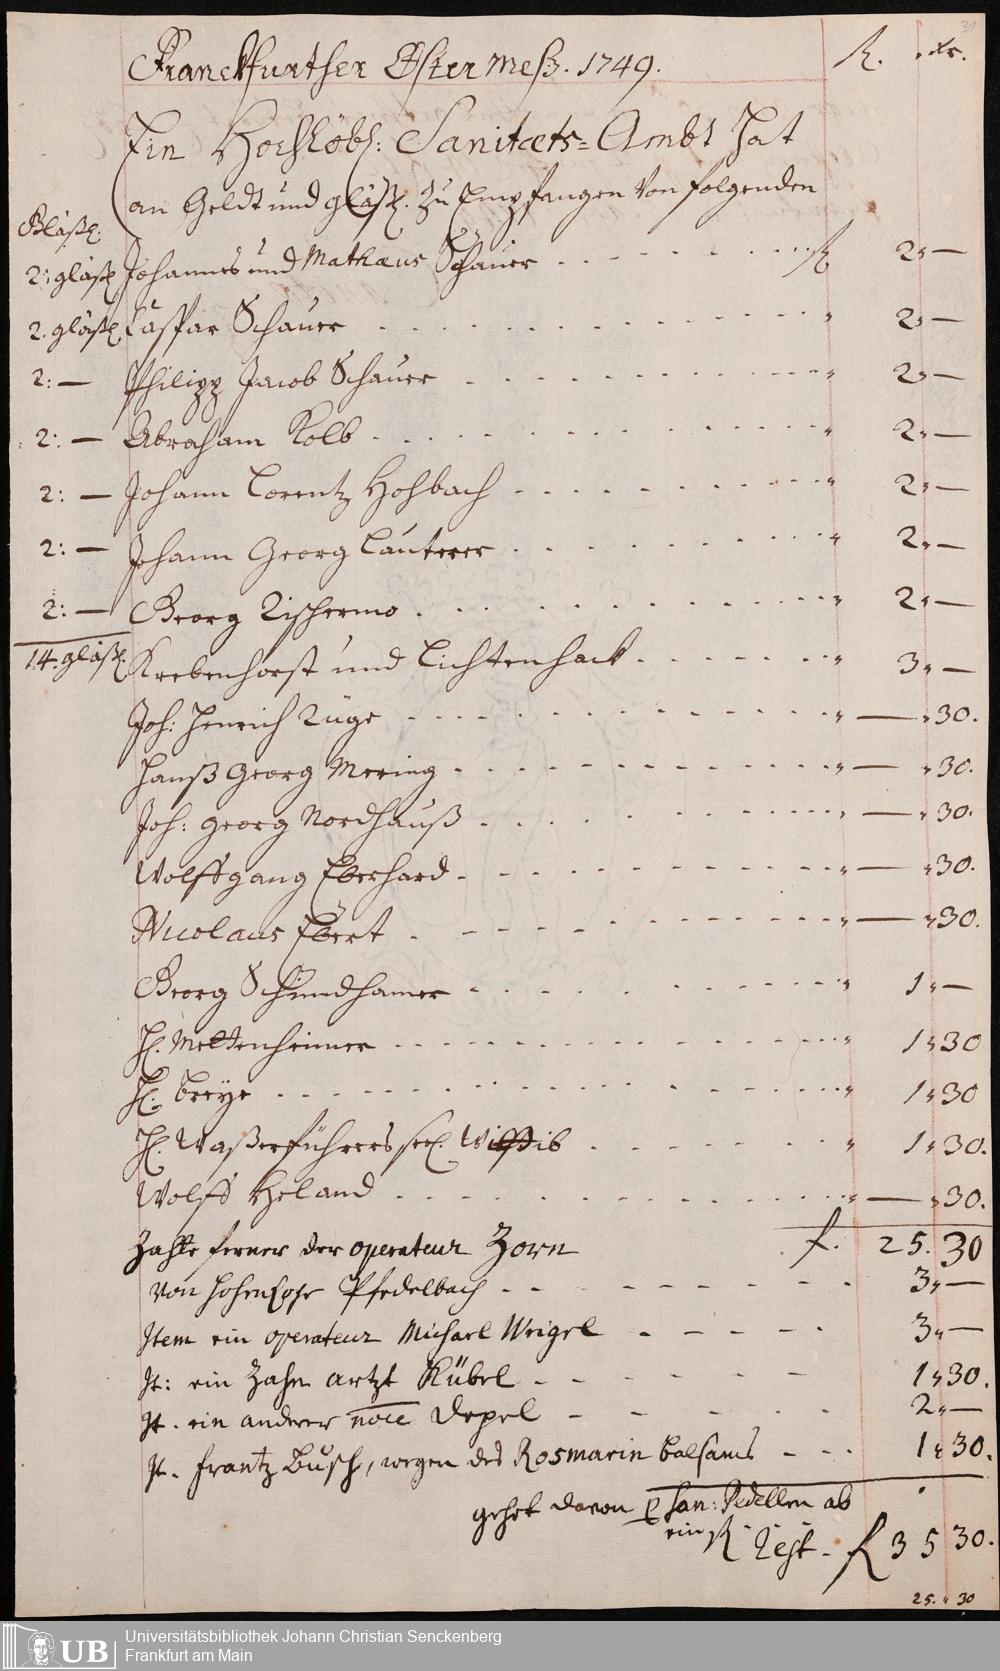 Franckfurther Oster Meß. 1749. f. xr.
Ein Hochlöbl: Sanitæts=Ambt Hat
an Geldt und gläß. Zu Empfangen Von folgenden
Gläße:
2: gläß Johannes und Mathæus Schauer - - - f 2 " —
2. gläß Caspar Schauer - - - " 2 " —
2: — Philipp Jacob Schauer - - - " 2 " —
2: — Abraham Kolb - - - " 2 " —
2: — Johann Lorentz Hohbach - - - " 2 " —
2: — Johann Georg Lauterer - - - " 2 " —
2: — Georg - - - " 2 " —
14. gläß. Krebenhorst und Lichtenhack - - - " 3 " —
Joh: Henrich Züge - - - " — " 30.
Hanß Georg Mering - - - " — " 30.
Joh: Georg Nordhauß - - - " — " 30.
Wolffgang Eberhard - - - " — " 30.
Nicolaus Ebert - - - " — " 30.
Georg Schmidhamer - - - " 1 " —
H. Mettenheimer - - - " 1 " 30
H. Breye - - - " 1 " 30
H. Waßerführers seel. Wittib - - - " 1 " 30.
Wolff Heland - - - " — " 30.
Zahlte ferner der operateur Zorn f. 25. 30
von Hohenlohe Pfedelbach - - - 3 " —
Item ein operateur Michael Weigel - - - 3 " —
It: ein Zahn artzt Kübel - - - 1 " 30.
It. ein anderer noie Depel - - - 2 " —
It. Frantz Busch, wegen des Rosmarin balsams - - - 1 " 30.
gehet davon p San: Pedellen ab
ein f. Rest - f 35 30.
25. " 30
UB Universitätsbibliothek Johann Christian Senckenberg
Frankfurt am Main